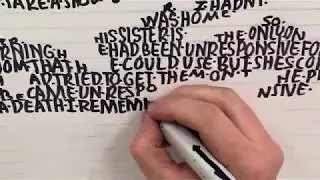 TAKE A SHOW
Z HADN'T
WAS HOME SO
HIS SISTER IS THE ONLY ON
RNING H E HAD BEEN UNRESPONSIVE FO
OM THAT H E COULD USE BUT SHE SCO
AP TRIED TO GET THEM ON T HE P
CAME UN RESPO NSIVE.
A DEATH I REMEM